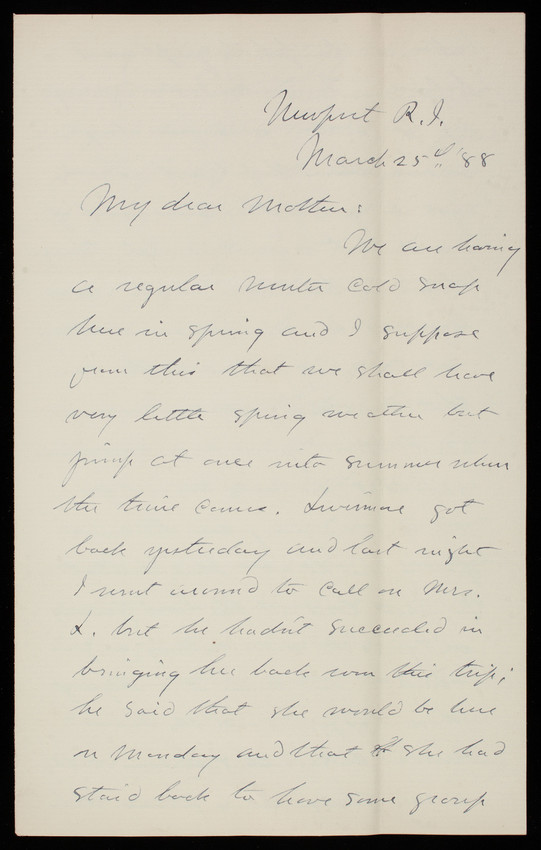 Newport R.I.
March 25th '88
My dear Mother:
We are having
a regular winter cold snap
here in spring and I suppose
from this that we shall have
very little spring weather but
jump at once into summer when
the time comes. got
back yesterday and last night
I went around to call on Mrs.
L. but he hadn't succeeded in
bringing her back from this trip;
he said that she would be here
on Monday and that she had
staid back to have some